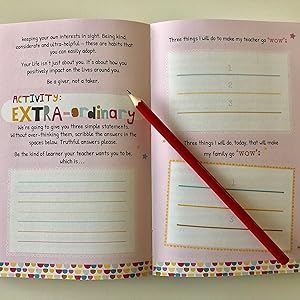 keeping your own interests in sight. Being kind,
considerate and ultra-helpful – these are habits that
you can easily adopt.
Your life isn't just about you: it's about how you
positively impact on the lives around you.
Be a giver, not a taker.
ACTIVITY:
EXTRA-ordinary
We're going to give you three simple statements.
Without over-thinking them, scribble the answers in the
spaces below. Truthful answers please.
Be the kind of learner your teacher wants you to be,
which is...
Three things I will do to make my teacher go 'WOW':
1
2
3
Three things I will do, today, that will make
my family go 'WOW':
3